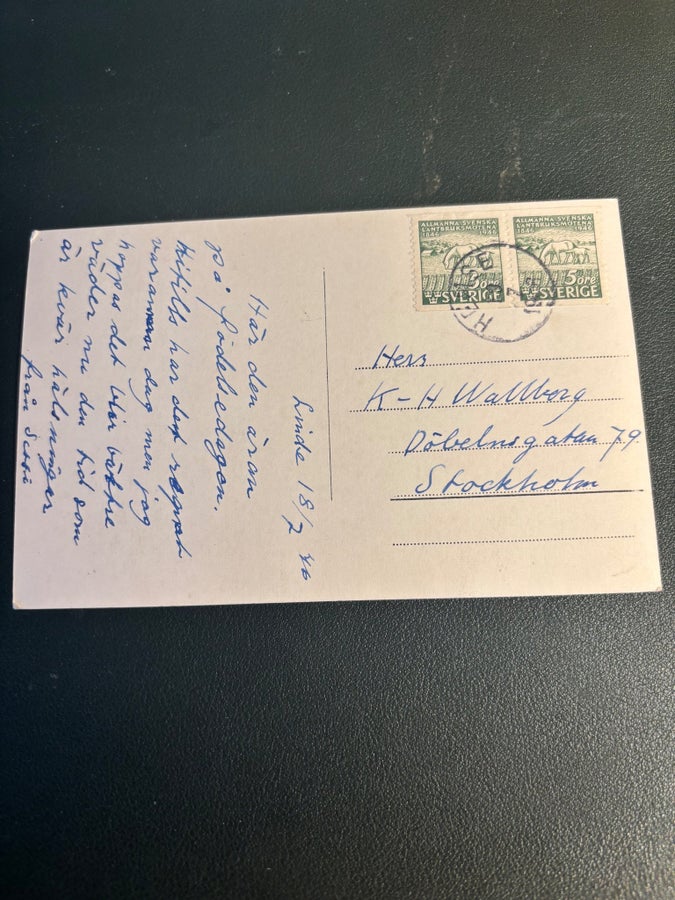 ALLMÄNNA SVENSKA
LANTBRUKSMÖTENA
1846 1946
5 öre
SVERIGE
ALLMÄNNA SVENSKA
LANTBRUKSMÖTENA
1846 1946
5 öre
SVERIGE
Linde 18/7 46
Har den äran
på födelsedagen.
har det regnat
varannan dag men jag
hoppas det blir bättre
väder nu den tid som
är kvar hälsningar
från
Herr
K-H Wallberg
Döbelnsgatan 79
Stockholm